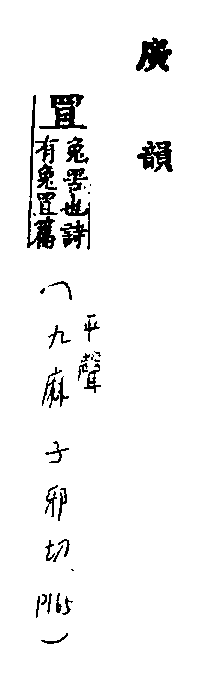 廣韻
罝
兔罟也詩
有兔罝篇
平聲
(九麻子邪切、P165)